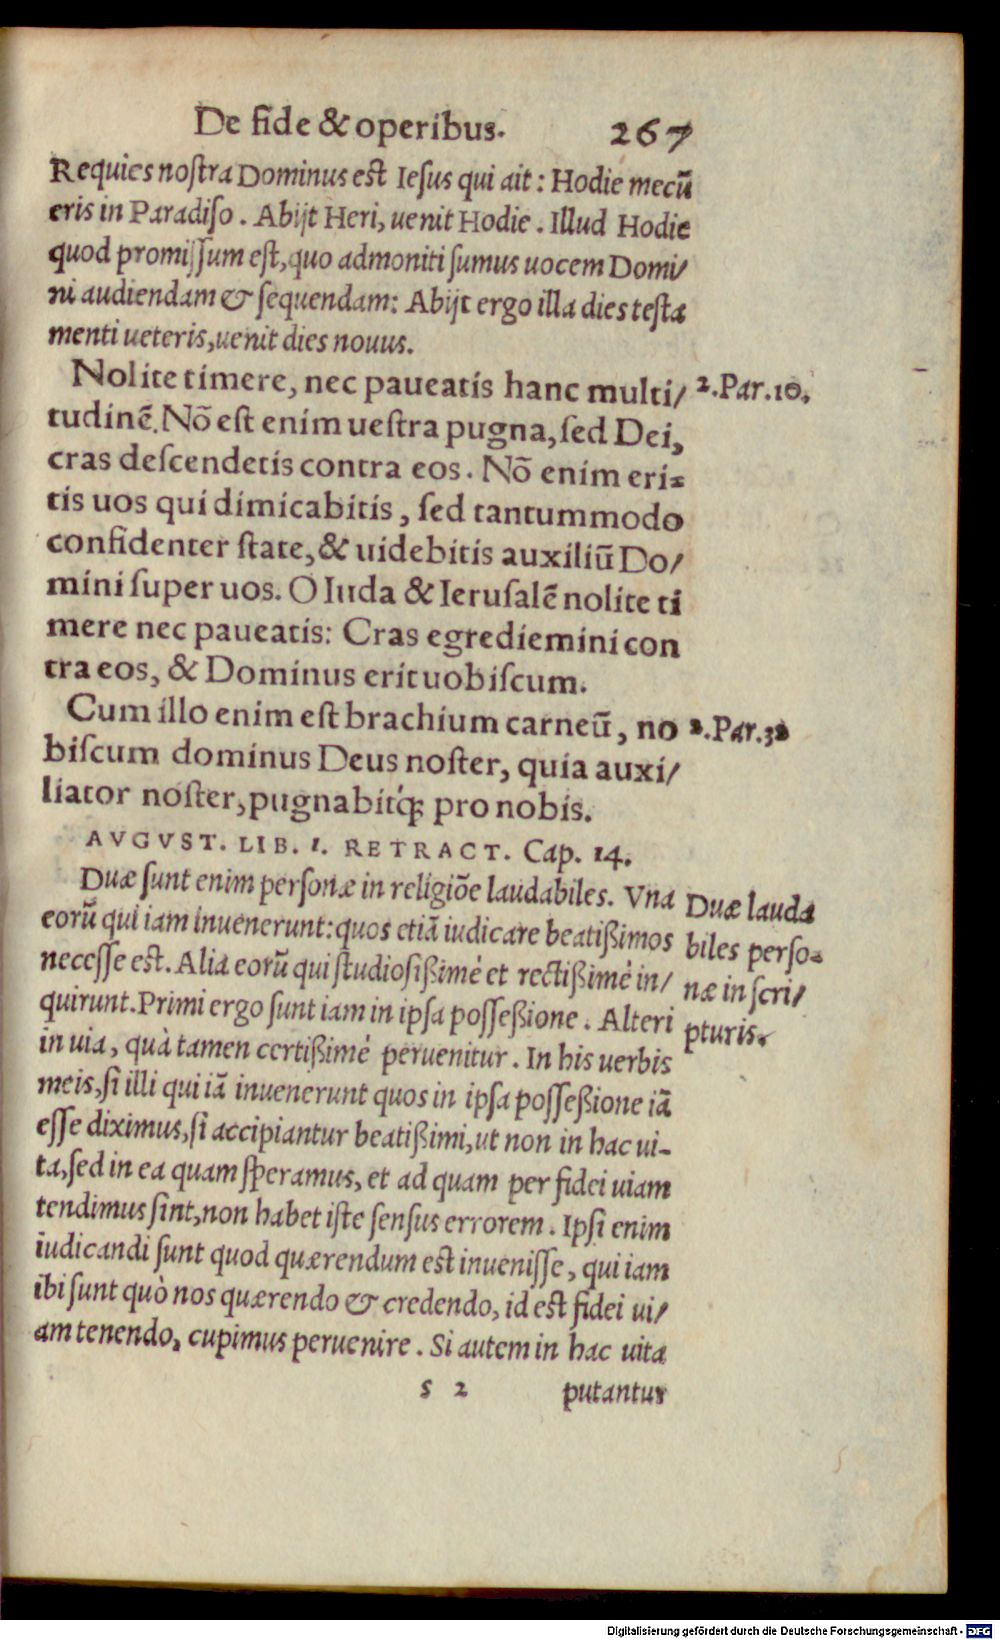 De fide & operibus. 267
Requies noſtra Dominus est Ieſus qui ait: Hodie mecū
eris in Paradiſo. Abijt Heri, uenit Hodie. Illud Hodie
quod promiſſum eſt, quo admoniti ſumus uocem Domi/
ni audiendam & ſequendam: Abijt ergo illa dies teſta
menti ueteris, uenit dies nouus.
Nolite timere, nec paueatis hanc multi/ 2.Par.10.
tudinē. Nō eſt enim ueſtra pugna, ſed Dei,
cras deſcendetis contra eos. Nō enim eri-
tis uos qui dimicabitis, ſed tantummodo
confidenter ſtate, & uidebitis auxiliū Do/
mini ſuper uos. O Iuda & Ieruſalē nolite ti
mere nec paueatis: Cras egrediemini con
tra eos, & Dominus erit uobiſcum.
Cum illo enim eſt brachium carneū, no 2.Par.32
biſcum dominus Deus noſter, quia auxi/
liator noſter, pugnabitq́; pro nobis.
AVGVST. LIB. 1. RETRACT. Cap. 14.
Duæ ſunt enim perſonæ in religiōe laudabiles. Vna
eorū qui iam inuenerunt: quos etiā iudicare beatißimos
neceſſe est. Alia eorū qui ſtudioſißimè et rectißimè in/
quirunt. Primi ergo ſunt iam in ipſa poſſeßione. Alteri
in uia, quà tamen certißimè peruenitur. In his uerbis
meis, ſi illi qui iā inuenerunt quos in ipſa poſſeßione iā
eſſe diximus, ſi accipiantur beatißimi, ut non in hac ui-
ta, ſed in ea quam ſperamus, et ad quam per fidei uiam
tendimus ſint, non habet iſte ſenſus errorem. Ipſi enim
iudicandi ſunt quod quærendum est inueniſſe, qui iam
ibi ſunt quò nos quærendo & credendo, id est fidei ui/
am tenendo, cupimus peruenire. Si autem in hac uita
Duæ lauda
biles perſo-
næ in ſcri/
pturis.
s 2 putantur
Digitalisierung gefördert durch die Deutsche Forschungsgemeinschaft - DFG